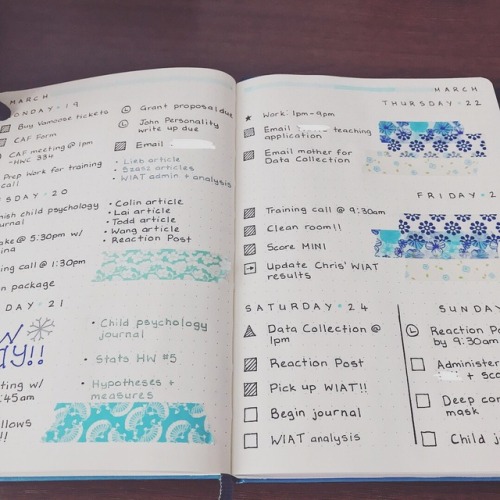 MARCH
MONDAY • 19
Buy Vamoose tickets
CAF Form
CAF meeting @ 1pm
~HWC 334
Prep work for training
call
Grant proposal due
John Personality
write up due
Email
• Lieb article
• Szasz articles
• WIAT admin + analysis
SDAY • 20
nish child psychology
urnal
ke @ 5:30pm w/
ina
ing call @ 1:30pm
n package
• Colin article
• Lai article
• Todd article
• Wang article
• Reaction Post
DAY • 21
ting w/
:45am
llows
!!
• Child psychology
journal
• Stats HW #5
• Hypotheses +
measures
MARCH
THURSDAY • 22
Work: 1pm-9pm
Email teaching
application
Email mother for
Data Collection
FRIDAY • 2
Training call @ 9:30am
Clean room!!
Score MINI
Update Chris' WIAT
results
SATURDAY • 24
Data Collection @
1pm
Reaction Post
Pick up WIAT!!
Begin journal
WIAT analysis
SUNDAY
Reaction Po
by 9:30am
Administer
+ sco
Deep con
mask
Child j